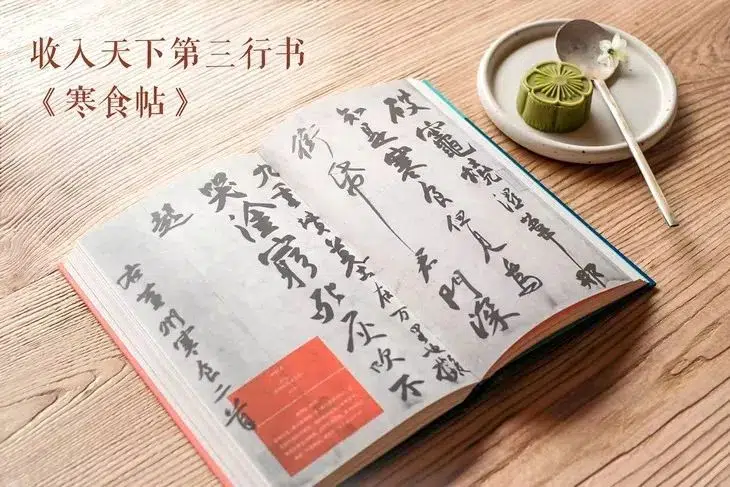 收入天下第三行书
《寒食帖》
破竈燒溼葦那
知是寒食但見烏
銜帋君門深
九重墳墓在万里也擬
哭塗窮死灰吹不
起
右黃州寒食二首